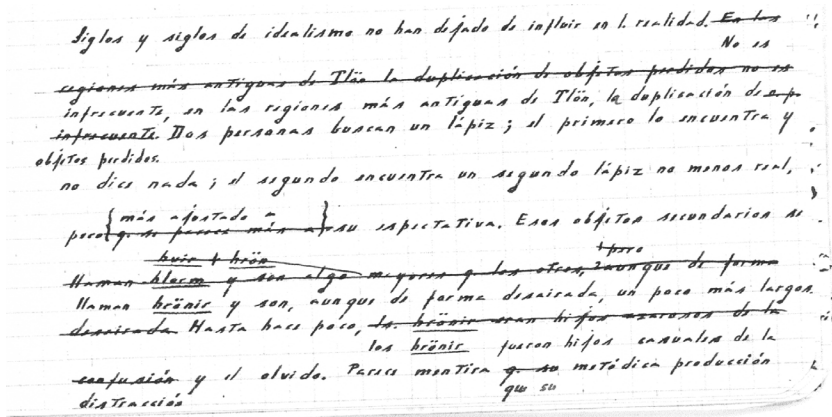 Siglos y siglos de idealismo no han dejado de influir en l. realidad. En las
No es
regiones más antiguas de Tlön la duplicación de objetos perdidos no es
infrecuente, en las regiones más antiguas de Tlön, la duplicación de o.p.
infrecuente. Dos personas buscan un lápiz; el primero lo encuentra y
objetos perdidos.
no dice nada; el segundo encuentra un segundo lápiz no menos real,
más ajustado a
pero q. se parece más a su espectativa. Esos objetos secundarios se
hrön
pero
llaman y son algo mayores q. los otros, aunque de forma
llaman hrönir y son, aunque de forma desairada, un poco más largos.
desairada. Hasta hace poco, ls. hrönir eran hijos azarosos de la
los hrönir fueron hijos casuales de la
confusión y el olvido. Parece mentira q. su metódica producción
distracción que su